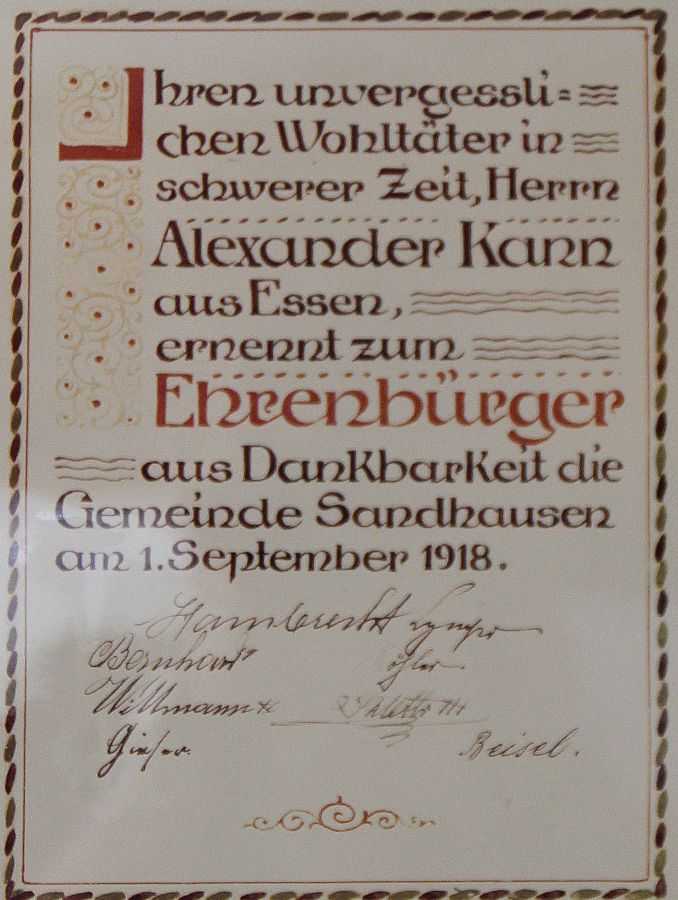 Ihren unvergessli=
chen Wohltäter in
schwerer Zeit, Herrn
Alexander Kann
aus Essen,
ernennt zum
Ehrenbürger
aus Dankbarkeit die
Gemeinde Sandhausen
am 1. September 1918.
Hambrecht
Bernhard
Willmann
Beisel.